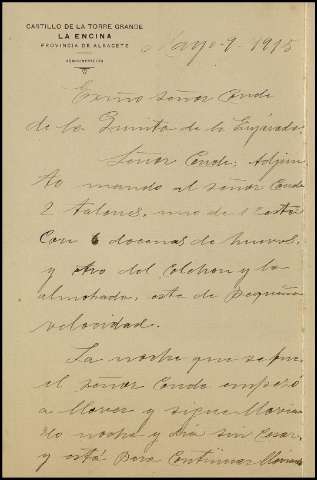 CASTILLO DE LA TORRE GRANDE
LA ENCINA
PROVINCIA DE ALBACETE
ADMINISTRACION
Mayo-9-1915
Exmo señor Conde
de la Quinta de la Enjarada.
Señor Conde; Adjun
to mando al señor Conde
2 talones, uno de 1 cesta
con 6 docenas de huevos,
y otro del colchon y la
almohada, este de pequeña
velocidad.
La noche que se fue
el señor Conde empezó
a llover y sigue llovien
do noche y dia sin cesar,
y está para continuar lloviendo